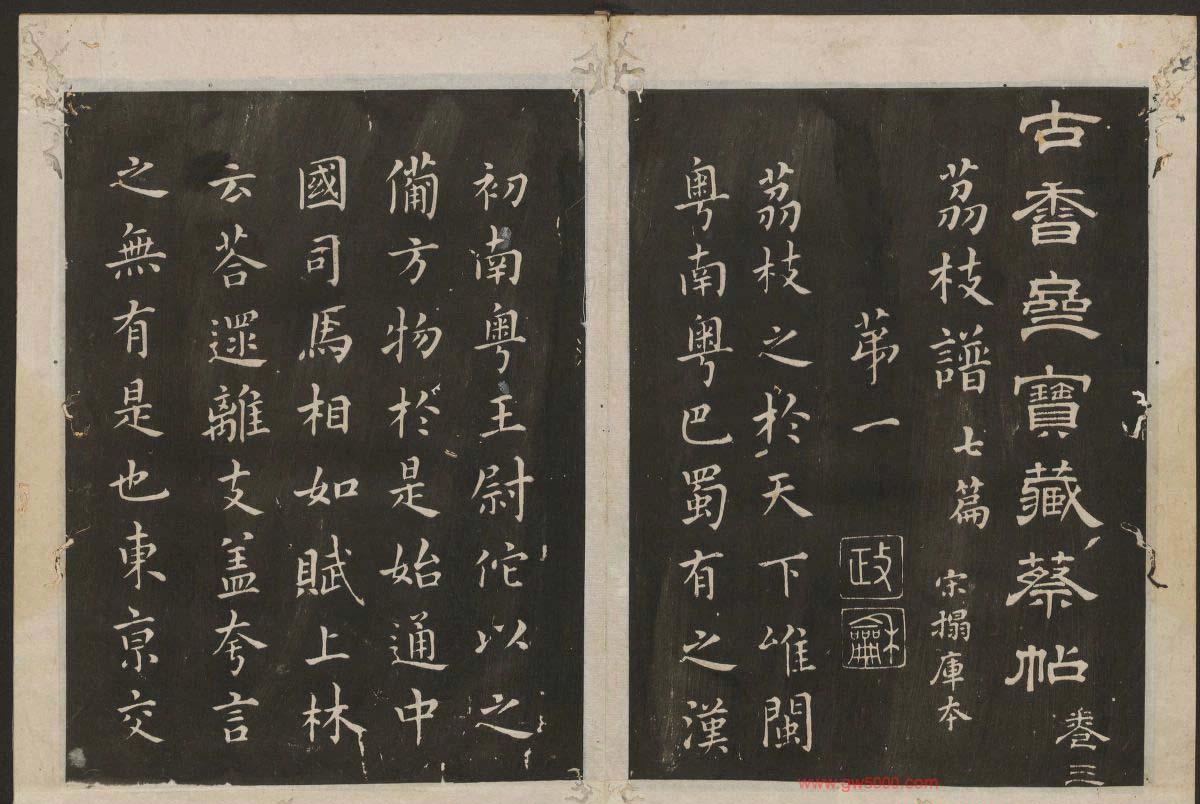 古香齋寶藏蔡帖 卷三
荔枝譜 七篇 宋搨庫本
第一
政
龢
荔枝之於天下唯閩
粵南粵巴蜀有之漢
初南粵王尉佗以之
備方物於是始通中
國司馬相如賦上林
云荅遝離支蓋夸言
之無有是也東京交
www.gw5000.com